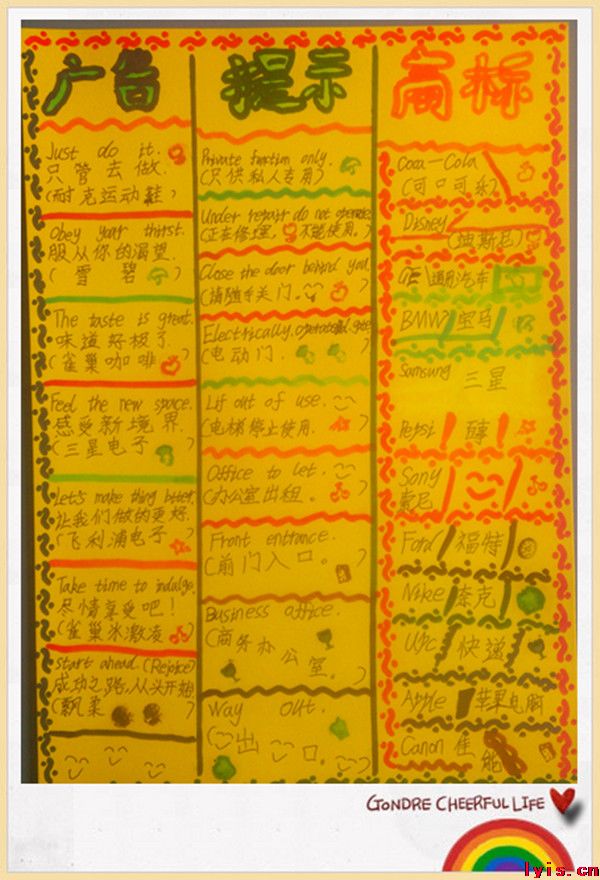 广告
Just do it.
只管去做.
(耐克运动鞋)
Obey your thirst.
服从你的渴望.
(雪碧)
The taste is great.
味道好极了.
(雀巢咖啡)
Feel the new space.
感受新境界.
(三星电子)
Let's make thing better.
让我们做的更好.
(飞利浦电子)
Take time to indulge.
尽情享受吧!
(雀巢冰激凌)
Start ahead. (Rejoice)
成功之路,从头开始
(飘柔)
提示
Private only.
(只供私人专用)
Under repair do not operate.
(正在修理, 不能使用。)
Close the door behind you.
(请随手关门.
Electrically operated gate
(电动门.
Lif out of use.
(电梯停止使用.
Office to let.
(办公室出租。
Front entrance.
(前门入口。
Business office.
(商务办
公室。
Way out.
(出口.
商标
Coca-Cola
(可口可乐)
Disney
(迪斯尼)
GE 通用汽车
BMW 宝马
Samsung
三星
Pepsi
Sony
索尼
Ford 福特
Nike 奈克
快递
Apple 苹果电脑
Canon 佳
能
GONDRE CHEERFUL LIFE
lyis.cn